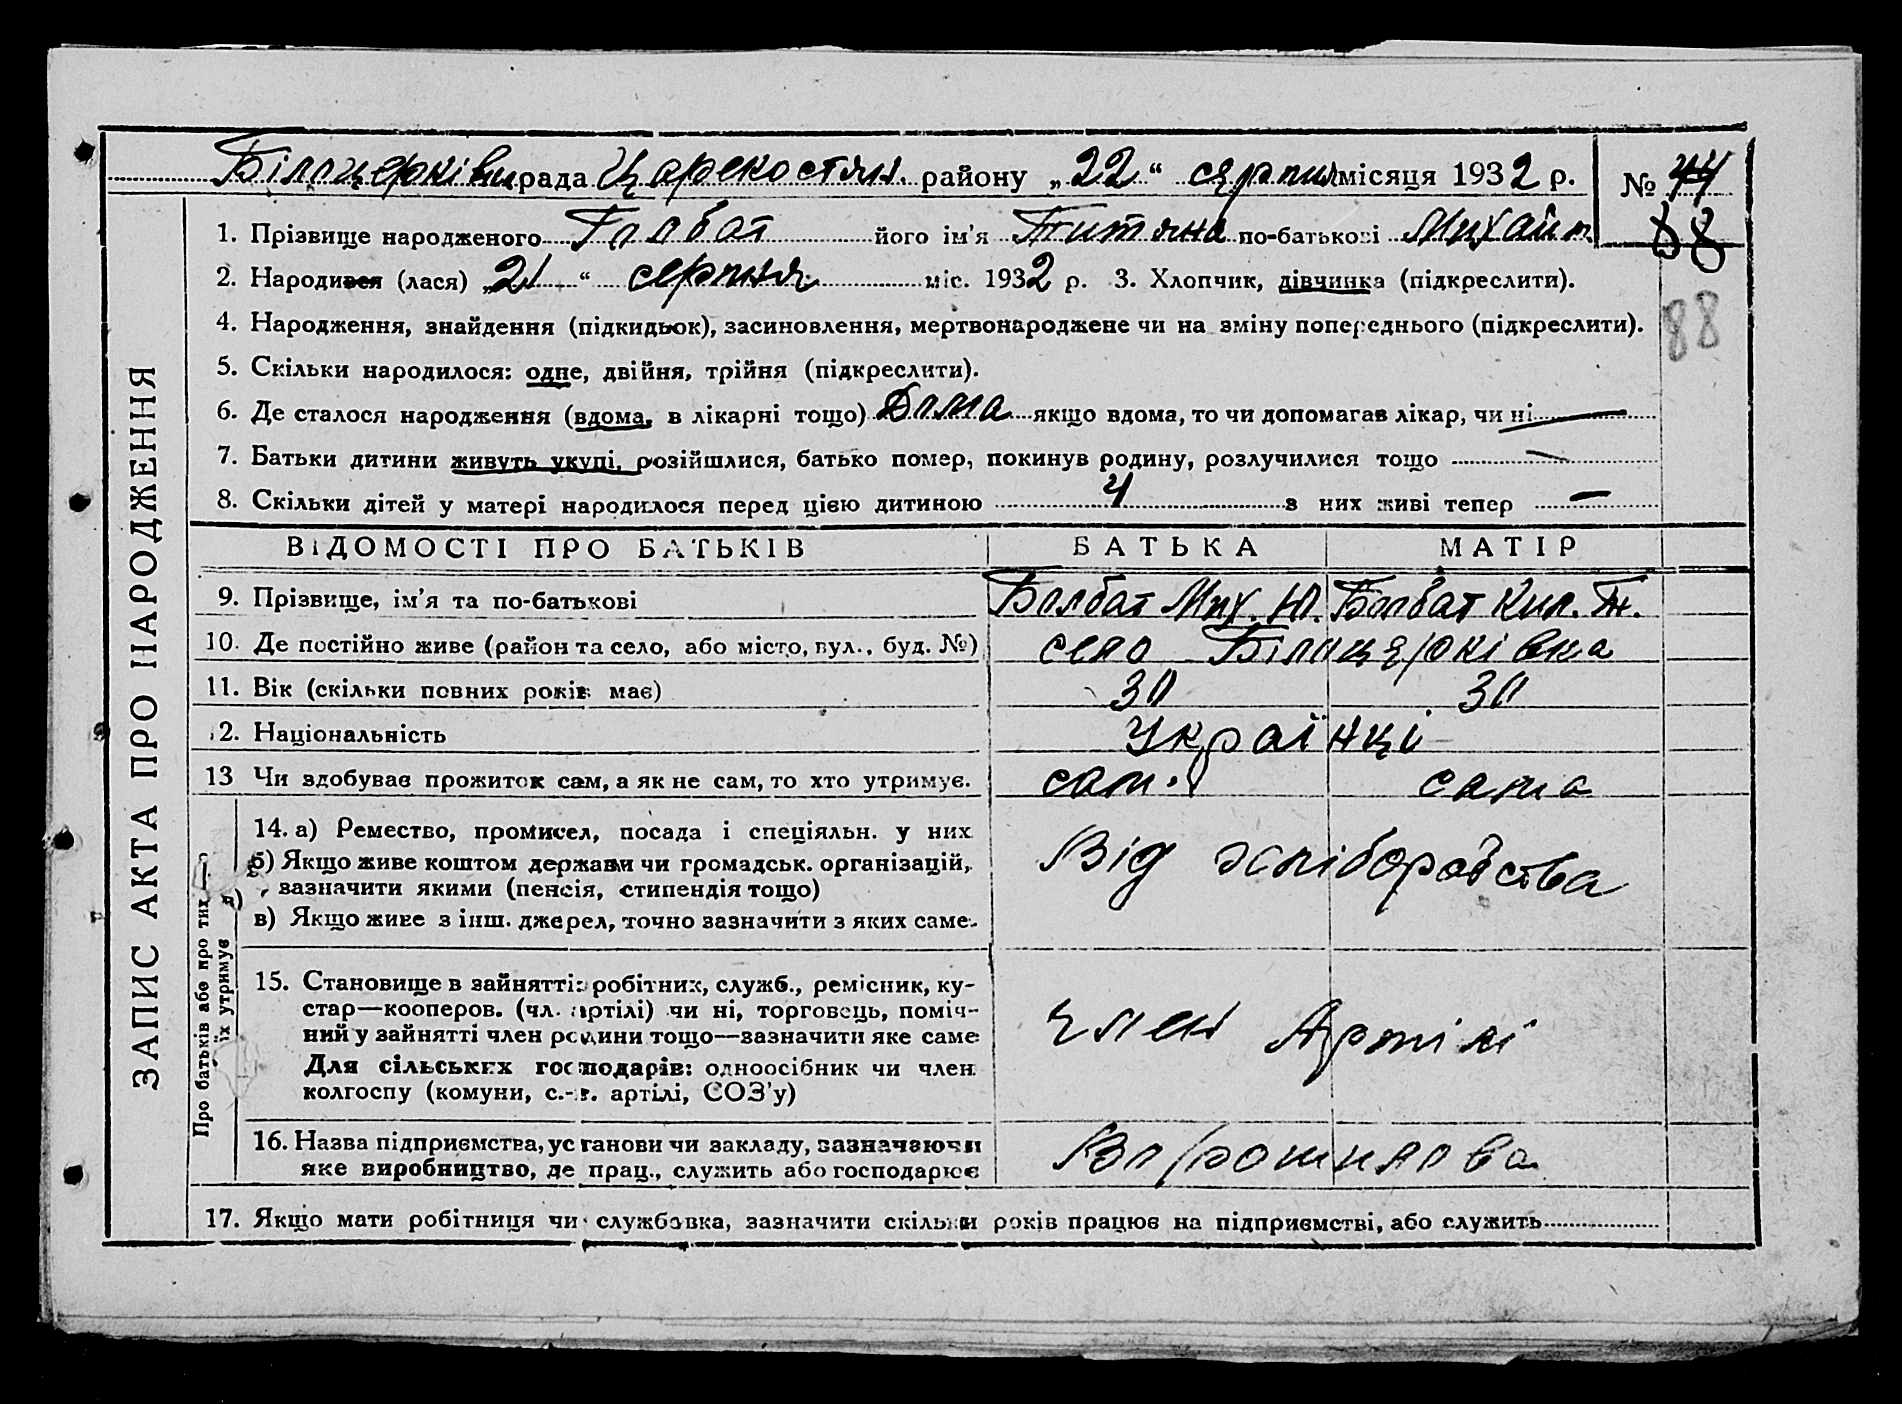 Білоцерківн. рада Царекостян. району „22“ серпня місяця 1932 р. № 44
88
1. Прізвище народженого Болбат його ім'я Титяна по-батькові Михайл.
2. Народився (лася) „21“ серпня міс. 1932 р. 3. Хлопчик, дівчинка (підкреслити).
88
4. Народження, знайдення (підкидьок), засиновлення, мертвонароджене чи на зміну попереднього (підкреслити).
5. Скільки народилося: одне, двійня, трійня (підкреслити).
6. Де сталося народження (вдома, в лікарні тощо) Дома якщо вдома, то чи допомагав лікар, чи ні —
7. Батьки дитини живуть укупі, розійшлися, батько помер, покинув родину, розлучилися тощо —
8. Скільки дітей у матері народилося перед цією дитиною 4 з них живі тепер —
ЗАПИС АКТА ПРО НАРОДЖЕННЯ
ВІДОМОСТІ ПРО БАТЬКІВ БАТЬКА МАТІР
9. Прізвище, ім'я та по-батькові Болбат Мих. Ю. Болбат Кил. Т.
10. Де постійно живе (район та село, або місто, вул., буд. №) село Білоцерківка
11. Вік (скільки повних років має) 30 30
12. Національність Українці
13 Чи здобуває прожиток сам, а як не сам, то хто утримує. сам. сама
Про батьків або про тих, хто їх утримує
14. а) Ремество, промисел, посада і спеціяльн. у них
б) Якщо живе коштом держави чи громадськ. організацій,
зазначити якими (пенсія, стипендія тощо)
в) Якщо живе з інш. джерел, точно зазначити з яких саме.
Від хліборобства
15. Становище в занятті: робітник, служб., ремісник, ку-
стар—кооперов. (чл. артілі) чи ні, торговець, поміч-
ний у зайнятті член родини тощо—зазначити яке саме
Для сільських господарів: одноосібник чи член
колгоспу (комуни, с.-г. артілі, СОЗ'у)
член Артілі
16. Назва підприємства, установи чи закладу, зазначаючи
яке виробництво, де прац., служить або господарює
Ворошилова
17. Якщо мати робітниця чи службовка, зазначити скільки років працює на підприємстві, або служить